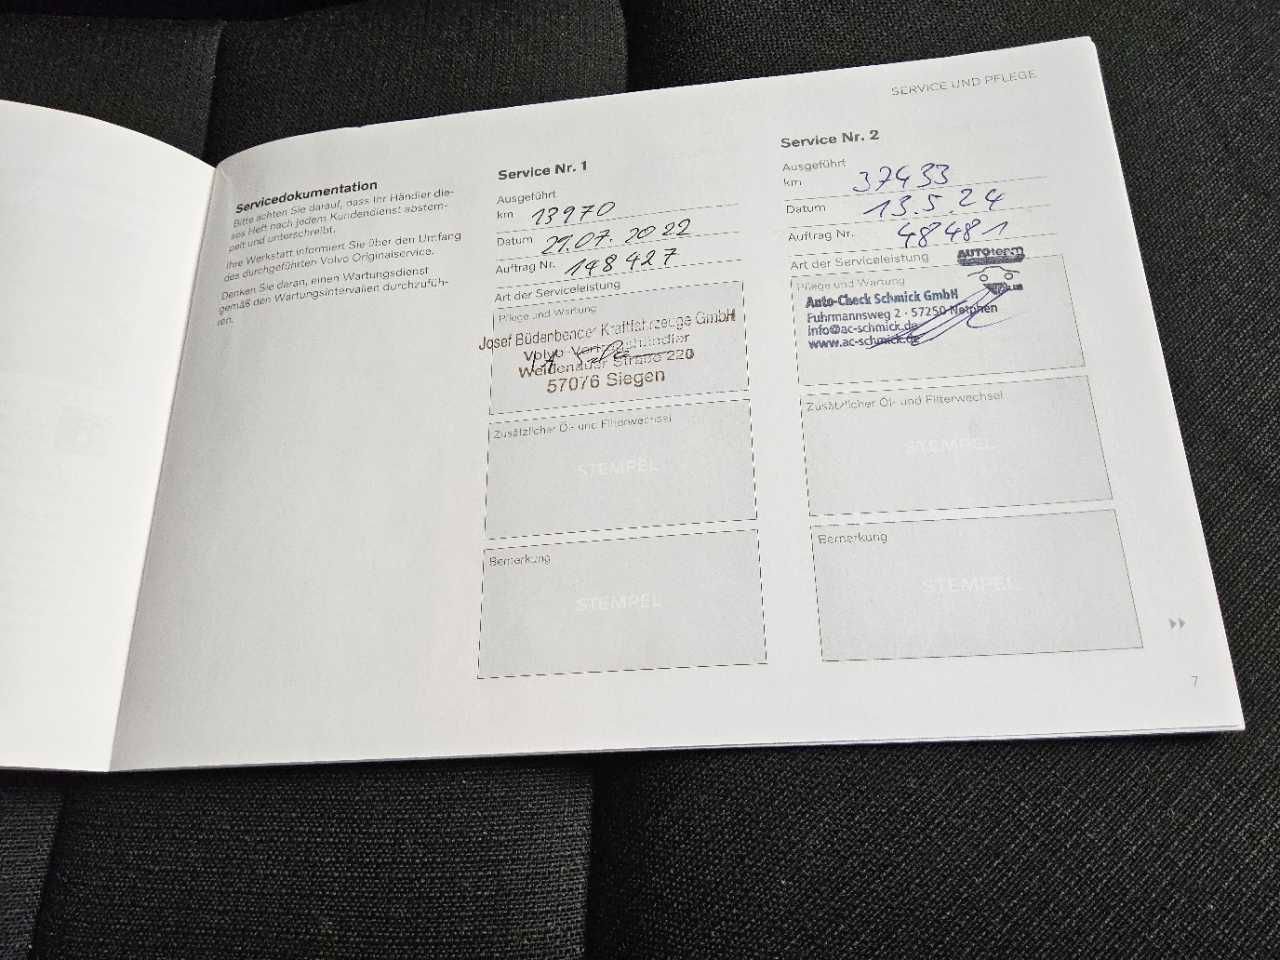 SERVICE UND PFLEGE
Servicedokumentation
Bitte achten Sie darauf, dass Ihr Händler die-
ses Heft nach jedem Kundendienst abstem-
pelt und unterschreibt.
Ihre Werkstatt informiert Sie über den Umfang
des durchgeführten Volvo Originalservice.
Denken Sie daran, einen Wartungsdienst
gemäß den Wartungsintervallen durchzufüh-
ren.
Service Nr. 1
Ausgeführt
km 13970
Datum 21.07.2022
Auftrag Nr. 148427
Art der Serviceleistung
Pflege und Wartung
Josef Büdenbender Kraftfahrzeuge GmbH
Volvo Vertragshändler
Weidenauer Straße 220
57076 Siegen
Zusätzlicher Öl- und Filterwechsel
STEMPEL
Bemerkung
STEMPEL
Service Nr. 2
Ausgeführt
km 37433
Datum 13.5.24
Auftrag Nr. 48481
Art der Serviceleistung
Pflege und Wartung
Auto-Check Schmick GmbH
Fuhrmannsweg 2 · 57250 Netphen
info@ac-schmick.de
www.ac-schmick.de
Zusätzlicher Öl- und Filterwechsel
STEMPEL
Bemerkung
STEMPEL
7